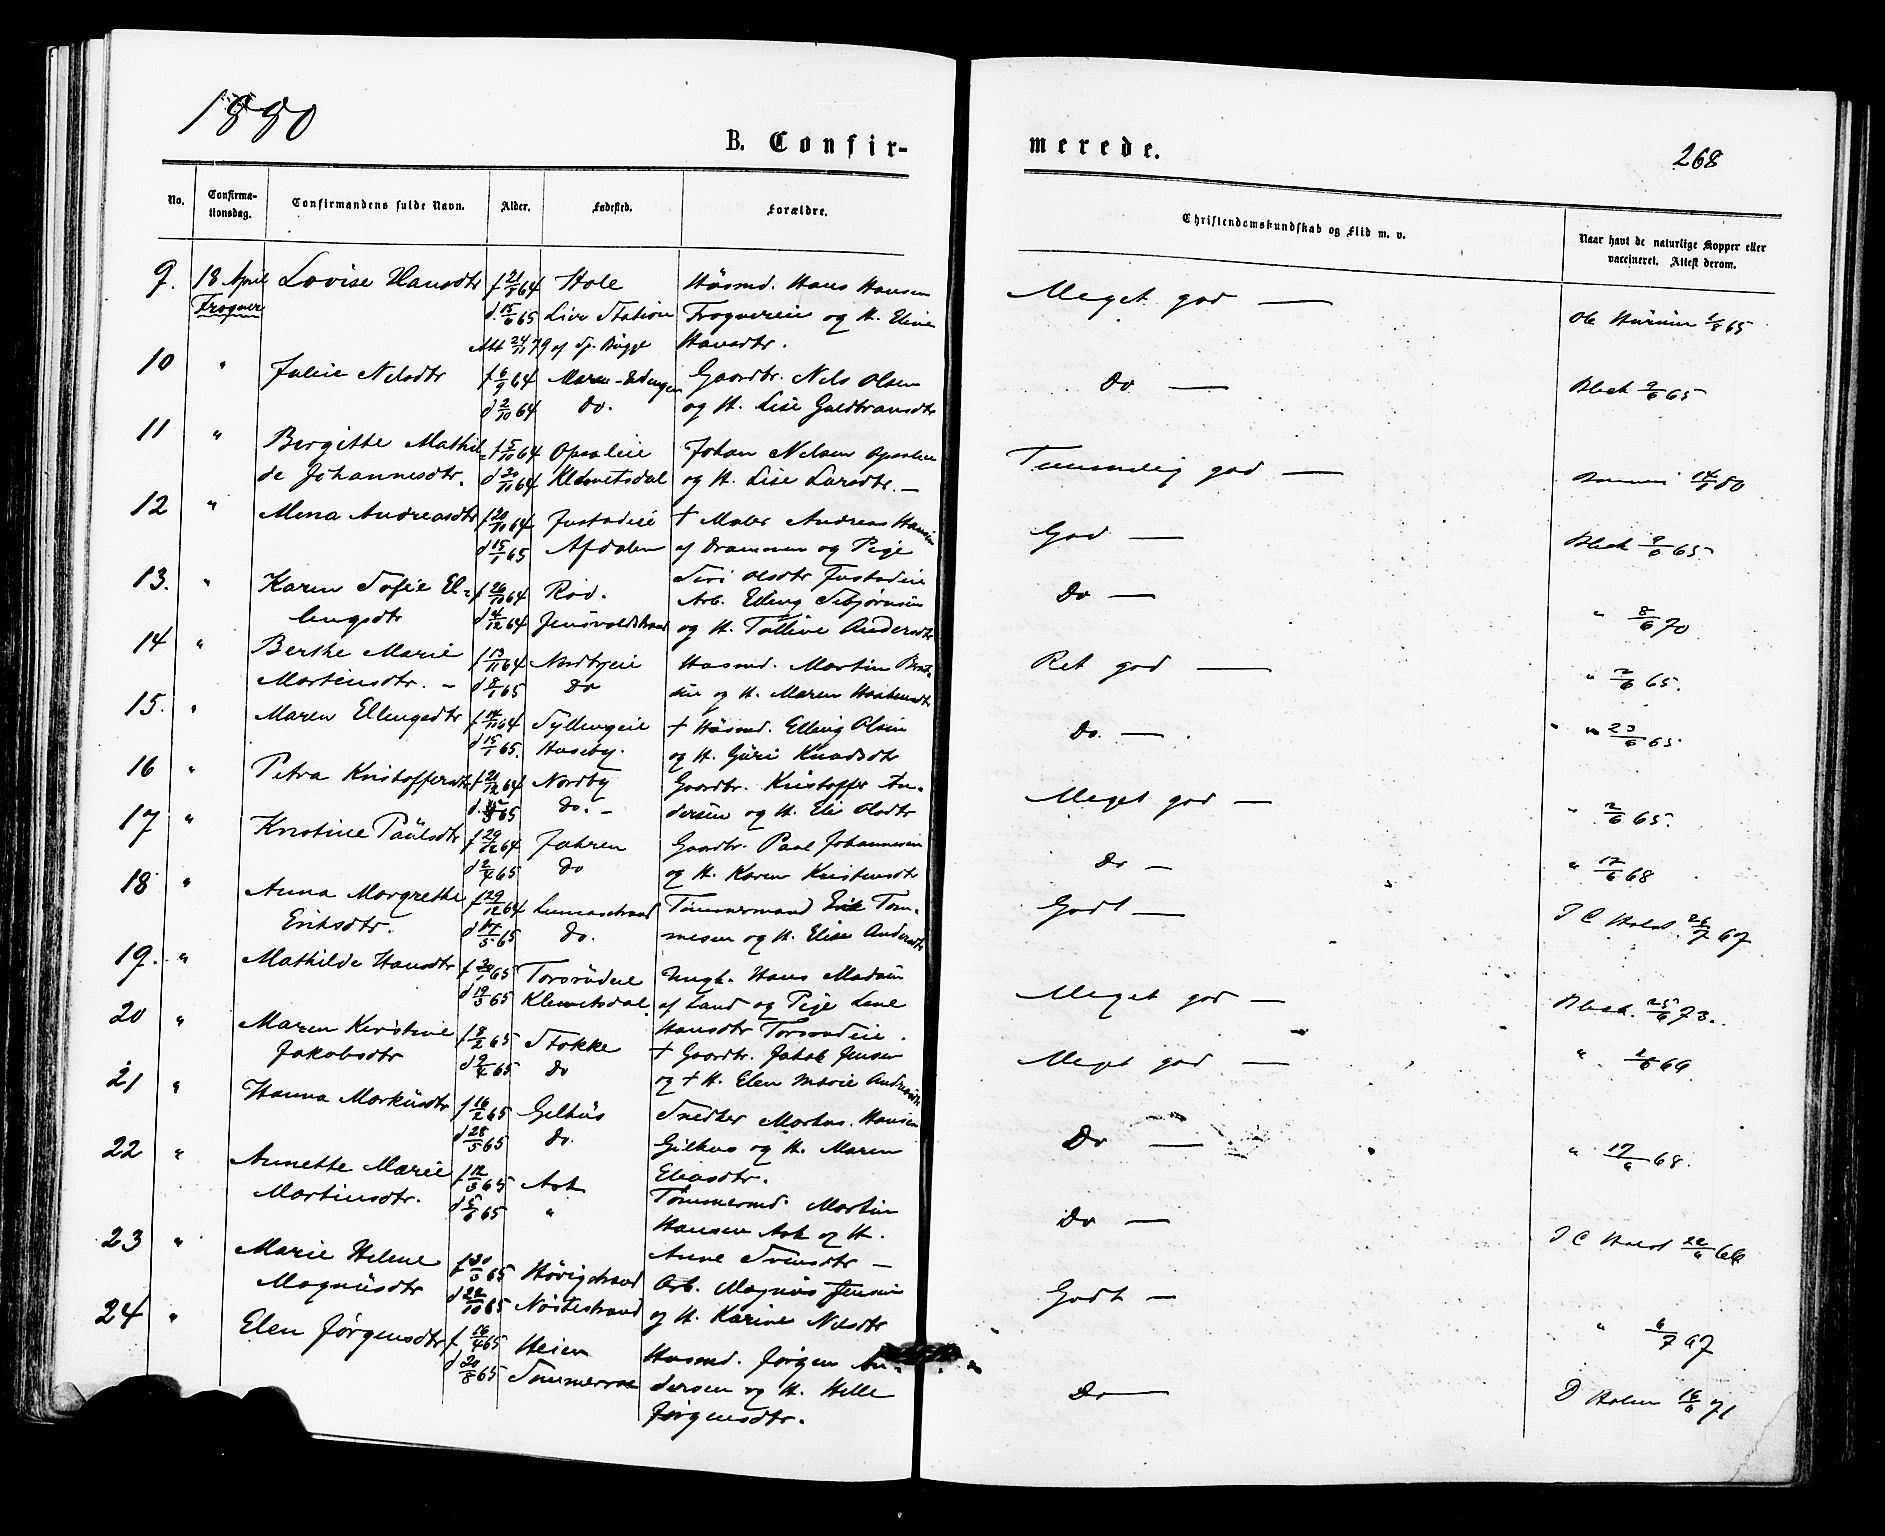 1880
B. Confir-
merede.
268
No.
Confirma-
tionsdag.
Confirmandens fulde Navn.
Alder.
Fødested.
Forældre.
Christendomskundskab og Flid m. v.
Naar havt de naturlige Kopper eller
vaccineret. Attest derom.
9. 18 April Lovise Hansdtr f 21/5 64 Hole Húsmd. Hans Hansen Meget god —
Frogner d. 15/6 65 Lier Station Frognereie og H. Eline Ole 1/8 65
Att 24/11 79 af Sp. Bugge Hansdtr.
10 " Julie Nelsdtr f 6/9 64 Gaardbr. Nels Olsen Do — Blech 2/6 65
d 2/10 64 Do. og H. Lise Guldbransdtr
11 " Birgitte Mathil= f 5/10 64 Opsaleie Johan Nelsen Opsaleie Temmelig god —
de Johannesdtr. d 20/11 64 Klemetsdal og H. Lise Larsdtr. — 80
12 " Mina Andreasdtr f 20/11 64 Justadeie † Maler Andreas Hansen God —
d 15/1 65 Afdalen af Drammen og Pige Blech 2/6 65
Siri Olsdtr Justadeie
13. " Karen Sofie El= f 26/10 64 Rød. Arb. Elling Do —
lingsdtr d 4/12 64 og H. Tolline Andersdtr " 8/6 70
14 " Berthe Marie f 13/11 64 Nordbyeie Husmd. Martin Ret god —
Martinsdtr. — d 8/1 65 Do sen og H. Maren " 2/6 65.
15. " Maren Ellingsdtr f 14/11 64 Syllingeie † Húsmd. Elling Olsen Do. — " " 23/6 65
d 15/1 65. Huseby. og H. Gúri Knudsdtr
16 " Petra Kristoffersdtr f 21/12 64 Nordby Gaardbr. Kristoffer An- Meget god —
d. 65 Do. — dersen og H. Eli Olsdtr " 2/6 65.
17 " Kristine Paúlsdtr f 29/12 64 Jahren Gaardbr. Paul Johannesen Do —
d 2/4 65 Do og H. Karen Kristensdtr " 17/6 68
18 " Anna Margrethe f 29/12 64 Tømmermand Erik Tom- Godt —
Eriksdtr. d 14/5 65 Do. mesen og H. Elise Andersdtr J C Holst 26/7 67
19. " Mathilde Hansdtr f 20/1 65 Torsrúdeie Ungk. Hans Madsen Meget god —
d 19/3 65 Klemetsdal. af Land og Pige Lene Blech. 25/6 73.
Hansdtr Torsrudeie.
20 " Maren Kristine f 8/2 65 Stokke † Gaardbr. Jakob Jensen Meget god —
Jakobsdtr d 9/4 65 Do og † H. Elen Marie " 2/6 66
21 " Hanna Markúsdtr f 16/2 65 Gilhús Snedker Markus Hansen Do —
d 28/5 65 Do. Gilhus og H. Maren " 17/6 68.
Eliasdtr.
22 " Annette Marie f 12/3 65 Ask Tømmermd. Martin Do —
Martinsdtr. d 5/6 65 " Hansen Ask og H. J C Holst 22/6 66
Anne Svensdtr —
23 " Marie Helene f 30/3 65 Høvigstrand Arb. Magnús Jensen Godt —
Magnúsdtr d 22/10 65 Nøstestrand og H. Karine Nilsdtr " 6/7 67
24 " Elen Jørgensdtr f 16/4 65 Heien Husmd. Jørgen An- Do —
d 20/8 65 dersen og H. Helle D Holm 16/6 71
Jørgensdtr.